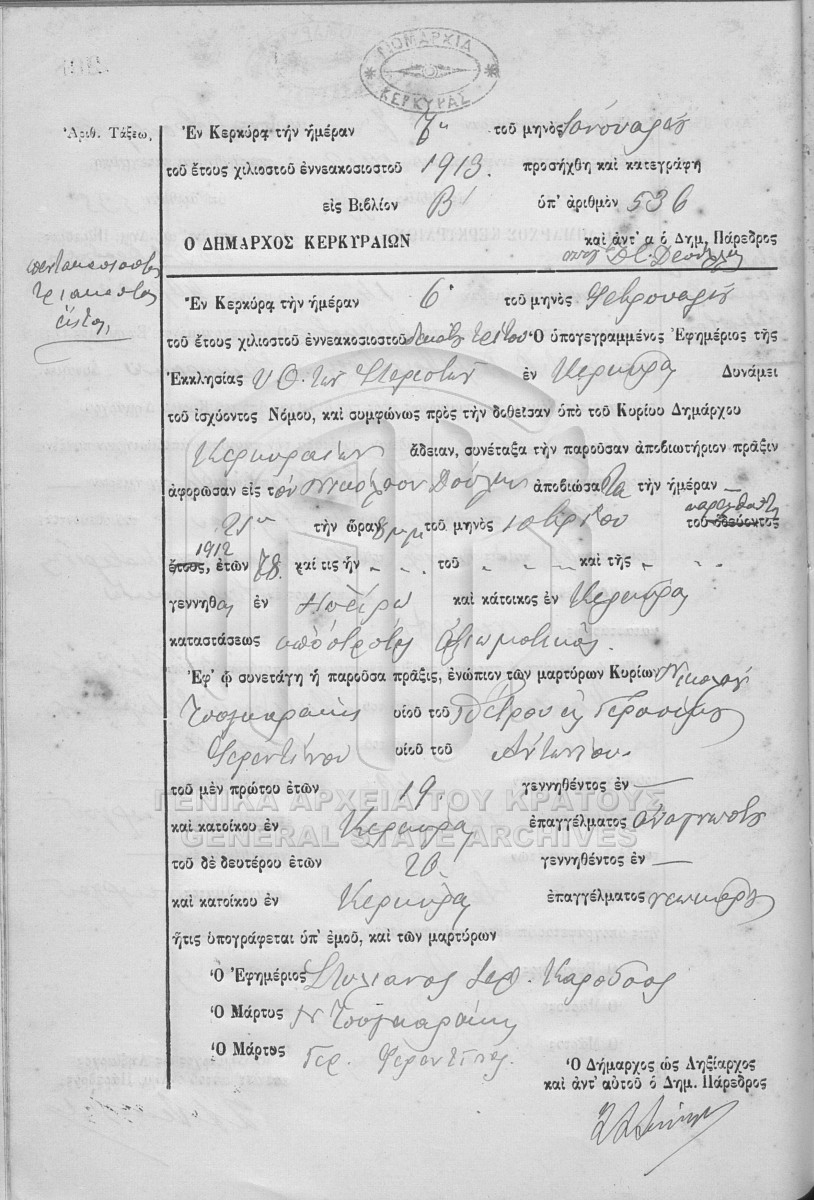 ΝΟΜΑΡΧΙΑ
ΚΕΡΚΥΡΑΣ
Ἀριθ. Τάξεω,
Ἐν Κερκύρᾳ τὴν ἡμέραν 7η τοῦ μηνὸς
τοῦ ἔτους χιλιοστοῦ ἐννεακοσιοστοῦ 1913. προσήχθη καὶ κατεγράφη
εἰς Βιβλίον Β' ὑπ' ἀριθμὸν 536
Ὁ ΔΗΜΑΡΧΟΣ ΚΕΡΚΥΡΑΙΩΝ καὶ ἀντ' α ὁ Δημ, Πάρεδρος
πεντακοσιοστὸς
τριακοστὸς
ἕκτος
Ἐν Κερκύρᾳ τὴν ἡμέραν 6 τοῦ μηνὸς Φεβρουαρίου
τοῦ ἔτους χιλιοστοῦ ἐννεακοσιοστοῦ δεκάτου τρίτου Ὁ ὑπογεγραμμένος Ἐφημέριος τῆς
Ἐκκλησίας Υ. Θ. τῶν ἐν Κερκύρᾳ Δυνάμει
τοῦ ἰσχύοντος Νόμου, καὶ συμφώνως πρὸς τὴν δοθεῖσαν ὑπὸ τοῦ Κυρίου Δημάρχου
Κερκυραίων ἄδειαν, συνέταξα τὴν παροῦσαν ἀποβιωτήριον πρᾶξιν
ἀφορῶσαν εἰς τὸν Νικόλαον ἀποβιώσαντα τὴν ἡμέραν —
21η τὴν ὥραν 8 μ.μ. τοῦ μηνὸς τοῦ ὁδεύοντος παρελθόντος
1912
ἔτους, ἐτῶν 78. καί τις ἦν „ „ „ τοῦ „ „ „ „ καὶ τῆς „ „
γεννηθεὶς ἐν Ἠπείρῳ καὶ κάτοικος ἐν Κερκύρᾳ
καταστάσεως ἀπόστρατος ἀξιωματικός.
Ἐφ' ᾧ συνετάγη ἡ παροῦσα πρᾶξις, ἐνώπιον τῶν μαρτύρων Κυρίων Νικολάου
Τσαγκαράκη υἱοῦ τοῦ Πέτρου καὶ Γερασίμου
Φεραντίνου υἱοῦ τοῦ Ἀντωνίου.
τοῦ μὲν πρώτου ἐτῶν 19 γεννηθέντος ἐν —
καὶ κατοίκου ἐν Κερκύρᾳ ἐπαγγέλματος ἀναγνώστου
τοῦ δὲ δευτέρου ἐτῶν 20. γεννηθέντος ἐν —
καὶ κατοίκου ἐν Κερκύρᾳ ἐπαγγέλματος νεωκόρου
ἥτις ὑπογράφεται ὑπ' ἐμοῦ, καὶ τῶν μαρτύρων
Ὁ Ἐφημέριος Στυλιανὸς Ἱερ.
Ὁ Μάρτυς Ν Τσαγκαράκης
Ὁ Μάρτυς Γερ. Φεραντίνος.
Ὁ Δήμαρχος ὡς Ληξίαρχος
καὶ ἀντ' αὐτοῦ ὁ Δημ. Πάρεδρος
ΓΕΝΙΚΑ ΑΡΧΕΙΑ ΤΟΥ ΚΡΑΤΟΥΣ
GENERAL STATE ARCHIVES